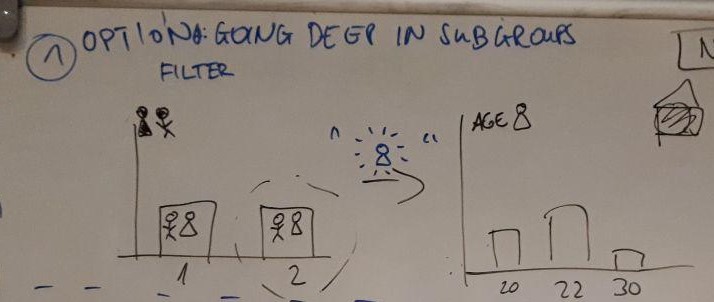 1 OPTION A: GOING DEEP IN SUBGROUPS
FILTER
AGE
1 2
20 22 30